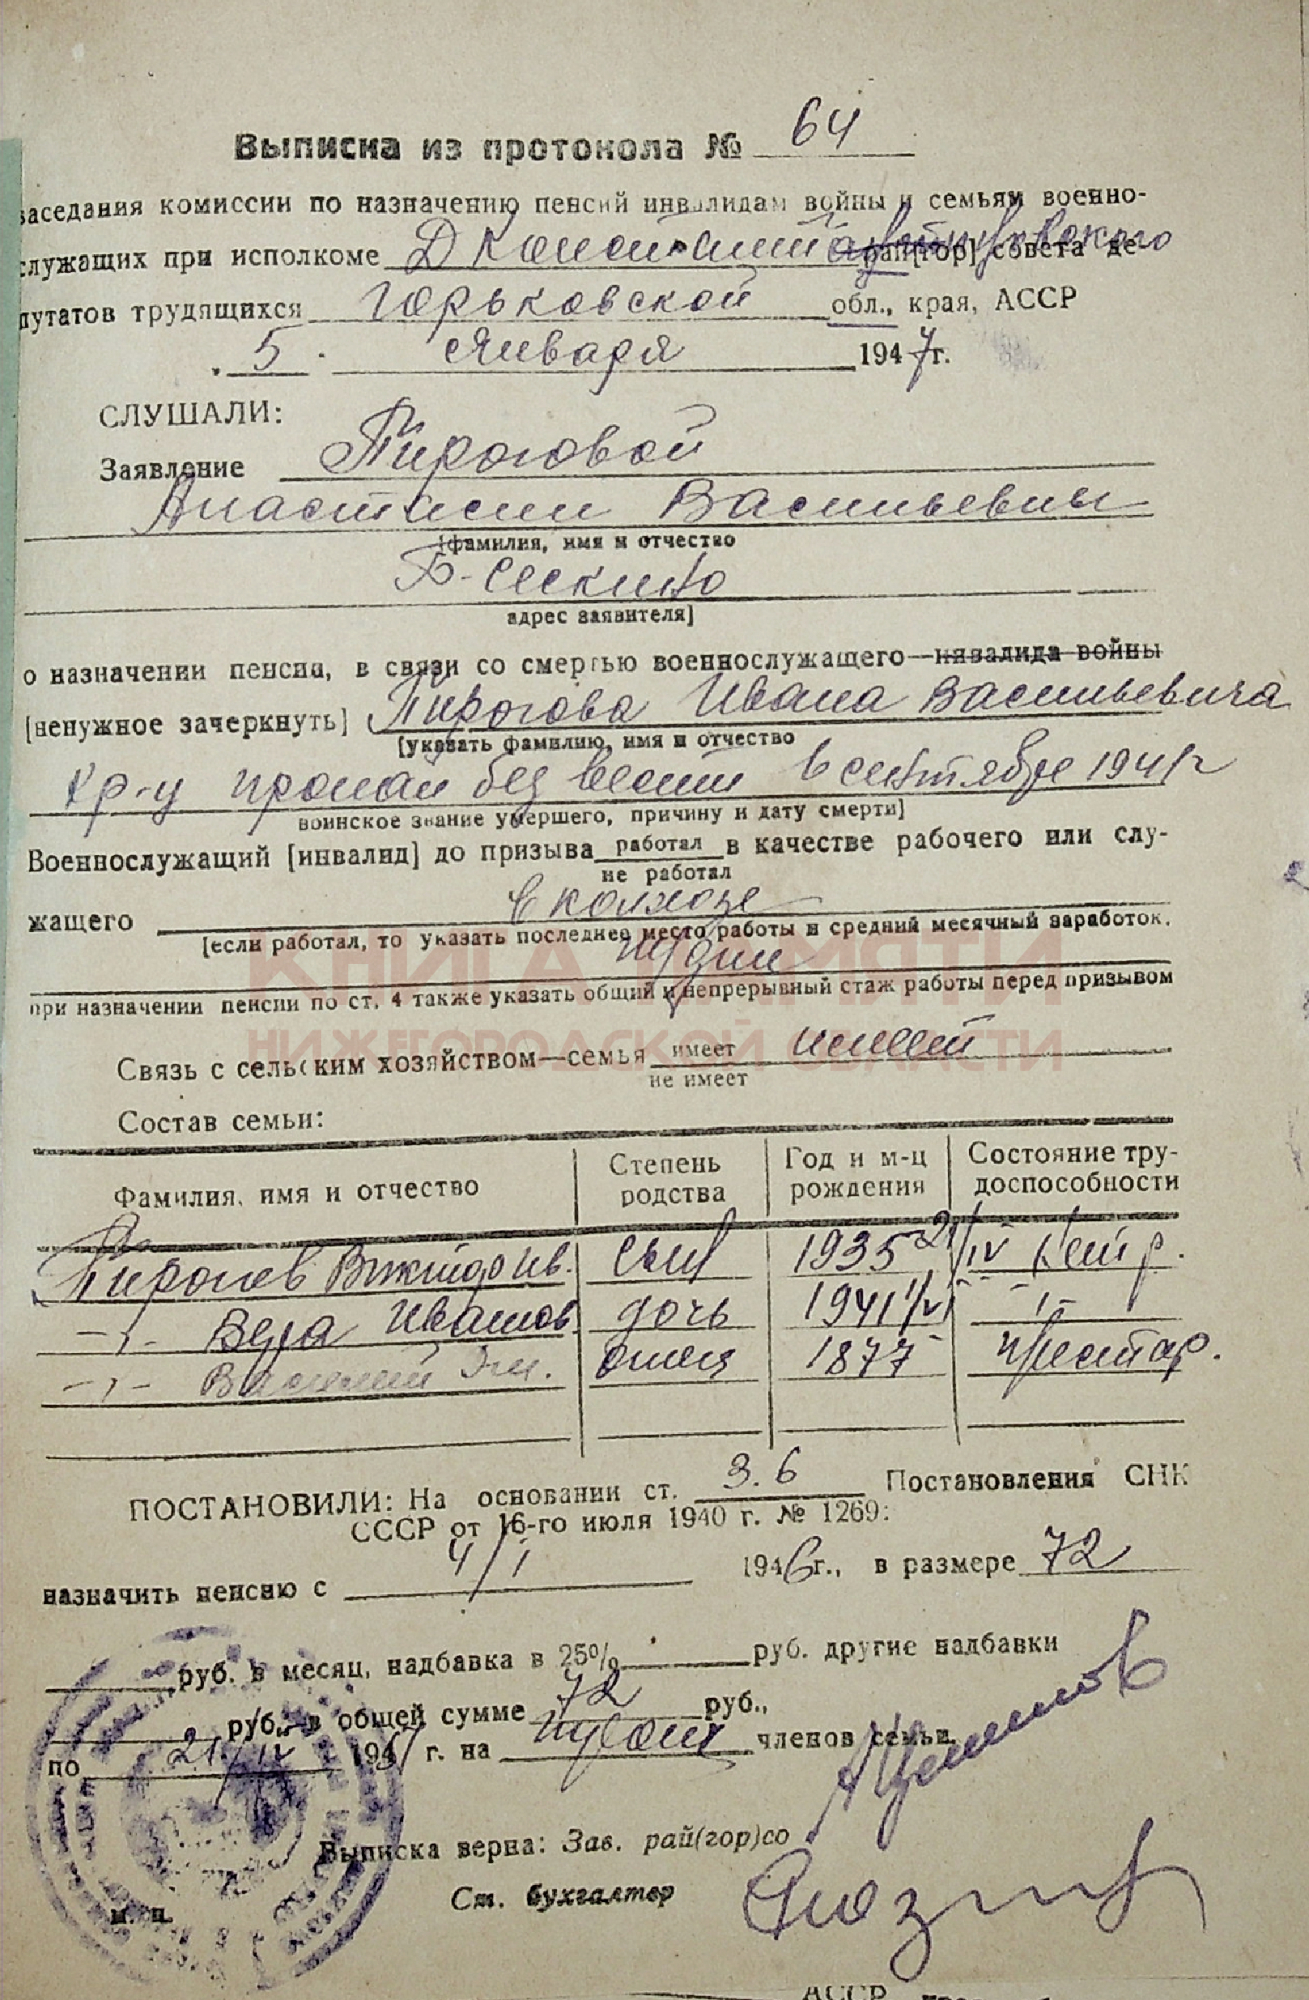 Выписка из протокола № 64
заседания комиссии по назначению пенсий инвалидам войны и семьям военно-
служащих при исполкоме Д Константиновского рай[гор] совета де-
путатов трудящихся Горьковской обл., края, АССР
5 Января 1947г.
СЛУШАЛИ:
Заявление Пироговой
Анастасии Васильевны
[фамилия, имя и отчество
Б-Сескино
адрес заявителя]
о назначении пенсии, в связи со смертью военнослужащего—инвалида войны
[ненужное зачеркнуть] Пирогова Ивана Васильевича
[указать фамилию, имя и отчество
кр-ц пропал без вести в сентябре 1941г
воинское звание умершего, причину и дату смерти]
Военнослужащий [инвалид] до призыва работал в качестве рабочего или слу-
не работал
жащего в колхозе
[если работал, то указать последнее место работы и средний месячный заработок,
при назначении пенсии по ст. 4 также указать общий и непрерывный стаж работы перед призывом
КНИГА ПАМЯТИ
НИЖЕГОРОДСКОЙ ОБЛАСТИ
Связь с сельским хозяйством—семья имеет имеет
не имеет
Состав семьи:
Фамилия, имя и отчество Степень родства Год и м-ц рождения Состояние тру-доспособности
Пирогов Виктор Ив. сын 1935 21/IV
-„- Вера Иванов. дочь 1941 -„-
-„- Василий отец 1877 престар.
ПОСТАНОВИЛИ: На основании ст. 3.6 Постановления СНК
СССР от 16-го июля 1940 г. № 1269:
назначить пенсию с 4/I 1946г., в размере 72
руб. в месяц, надбавка в 25% руб. другие надбавки
руб., в общей сумме 72 руб.,
по 21/IV 1951 г. на членов семьи.
Выписка верна: Зав. рай(гор)со
Ст. бухгалтер
м. п.
АССР